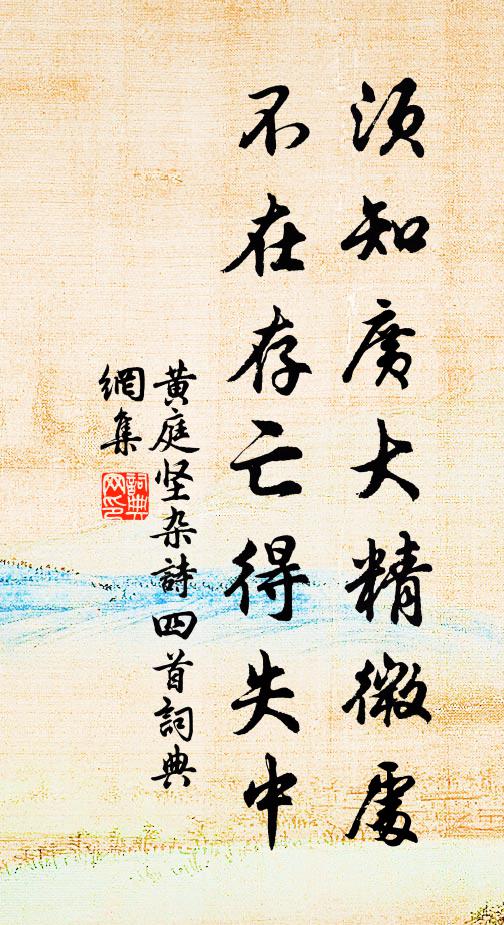 须知廣大精微處
不在存亡得失中
黄庭坚杂詩四首詞典
網集
詞典
网印